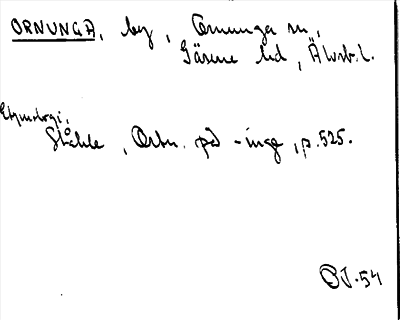 ORNUNGA, by, Ornunga sn,
Gäsene hd, Älvsb.l.
Etymologi:
Ståhle, Ortn. på -inge, p.525.
OJ-54